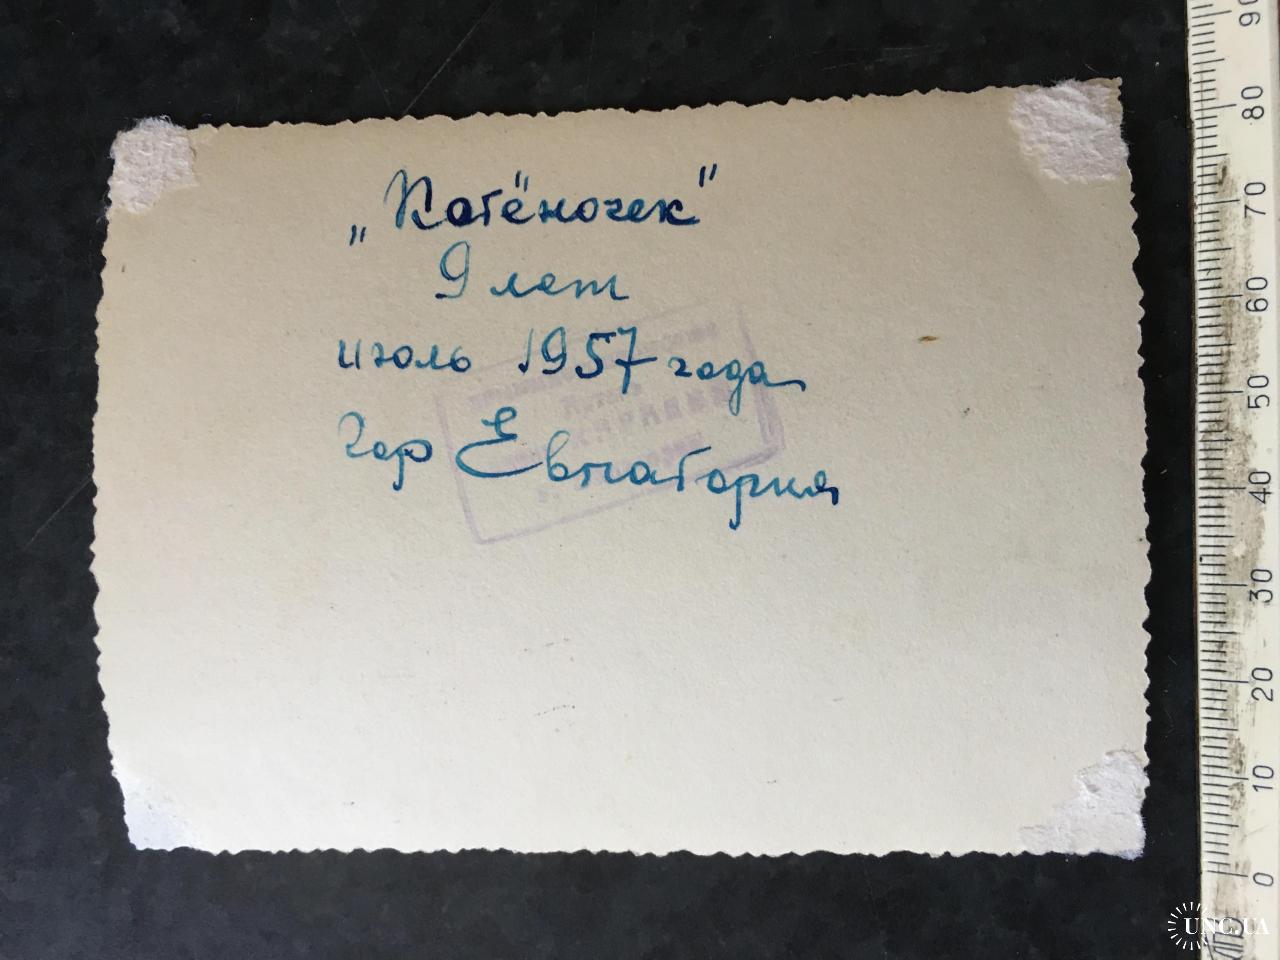 „Котёночек"
9 лет
июль 1957 года
гор Евпатория
90
80
70
60
50
40
30
20
10
0
UNC.UA